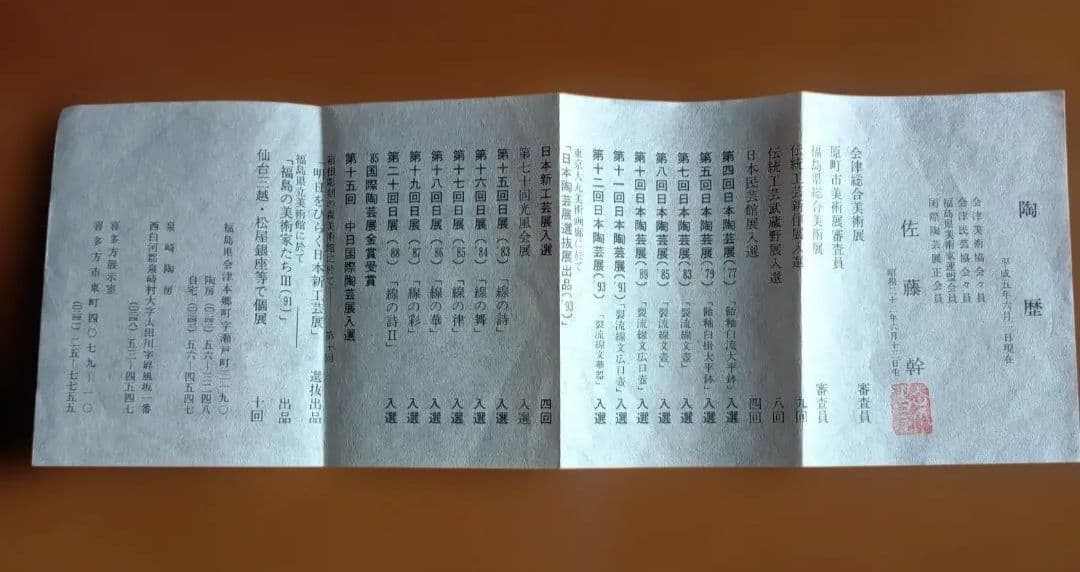 陶歴
平成五年六月一日現在
会津美術協会々員
会津民芸協会々員
福島県美術家連盟会員
国際陶芸展正会員
佐藤幹
昭和二十一年六月十二日生
会津総合美術展 審査員
原町市美術展審査員
福島県総合美術展 審査員
伝統工芸新作展入選 九回
伝統工芸武蔵野展入選 八回
日本民芸館展入選 四回
第四回日本陶芸展('77)「飴釉白流大平鉢」入選
第五回日本陶芸展('79)「飴釉白掛大平鉢」入選
第七回日本陶芸展('83)「裂流線文壺」入選
第八回日本陶芸展('85)「裂流線文壺」入選
第十回日本陶芸展('89)「裂流線文広口壺」入選
第十一回日本陶芸展('91)「裂流線文広口壺」入選
第十二回日本陶芸展('93)「裂流線文華器」入選
東京大丸美術画廊に於て
「日本陶芸展選抜展出品('93)」
日本新工芸展入選 四回
第七十回光風会展 入選
第十五回日展('83)「線の詩」入選
第十六回日展('84)「線の舞」入選
第十七回日展('85)「線の律」入選
第十八回日展('86)「線の華」入選
第十九回日展('87)「線の彩」入選
第二十回日展('88)「線の詩II」入選
'85国際陶芸展金賞受賞
第十五回 中日国際陶芸展入選
箱根彫刻の森美術館に於て 第十回
「明日をひらく日本新工芸展」 選抜出品
福島県立美術館に於て
「福島の美術家たちIII('91)」 出品
仙台三越・松屋銀座等で個展 十回
福島県会津本郷町字瀬戸町三二九〇
陶房(〇二四二)五六-三二四八
自宅(〇二四二)五六-四五四七
泉崎陶房
西白河郡泉崎村大字太田川字屏風坂一番
(〇二四八)五三-四五四七
喜多方展示室
喜多方市東町四〇七九-一〇
(〇二四一)二五-七七五五